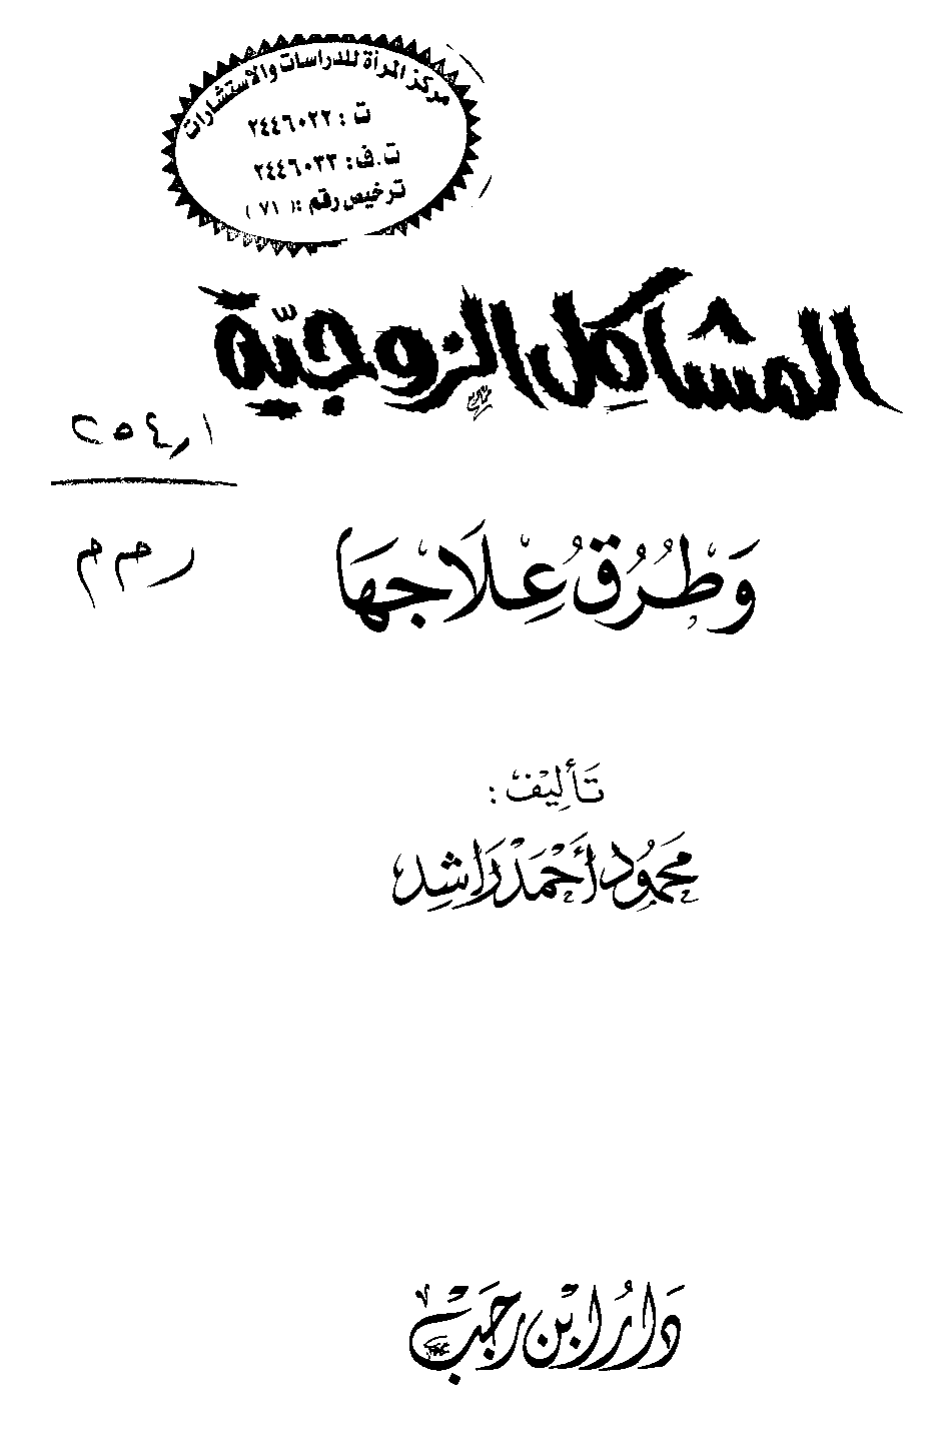 مركز المرأة للدراسات والاستشارات
ت : ٢٤٤٦٠٢٢
ت.ف: ٢٤٤٦٠٣٣
ترخيص رقم : ( ٧١ )
المشاكل الزوجيّة
٢٥٤,١
ر ح م
وَطُرُقُ عِلَاجهَا
تَأليْف :
محمُود أحْمَدْ رَاشِد
دَارُ ابْن رَجَبْ